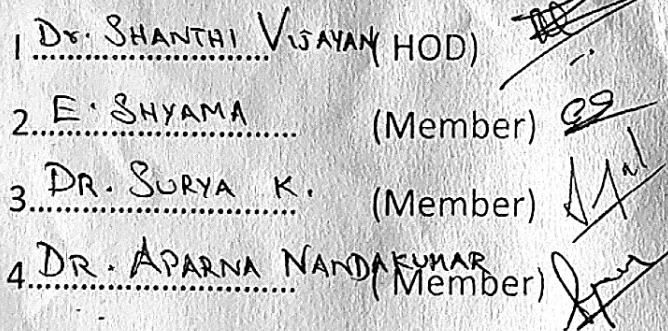 1 Dr. SHANTHI VIJAYAN (HOD)
2. E. SHYAMA (Member)
3. DR. SURYA K. (Member)
4. DR. APARNA NANDAKUMAR (Member)